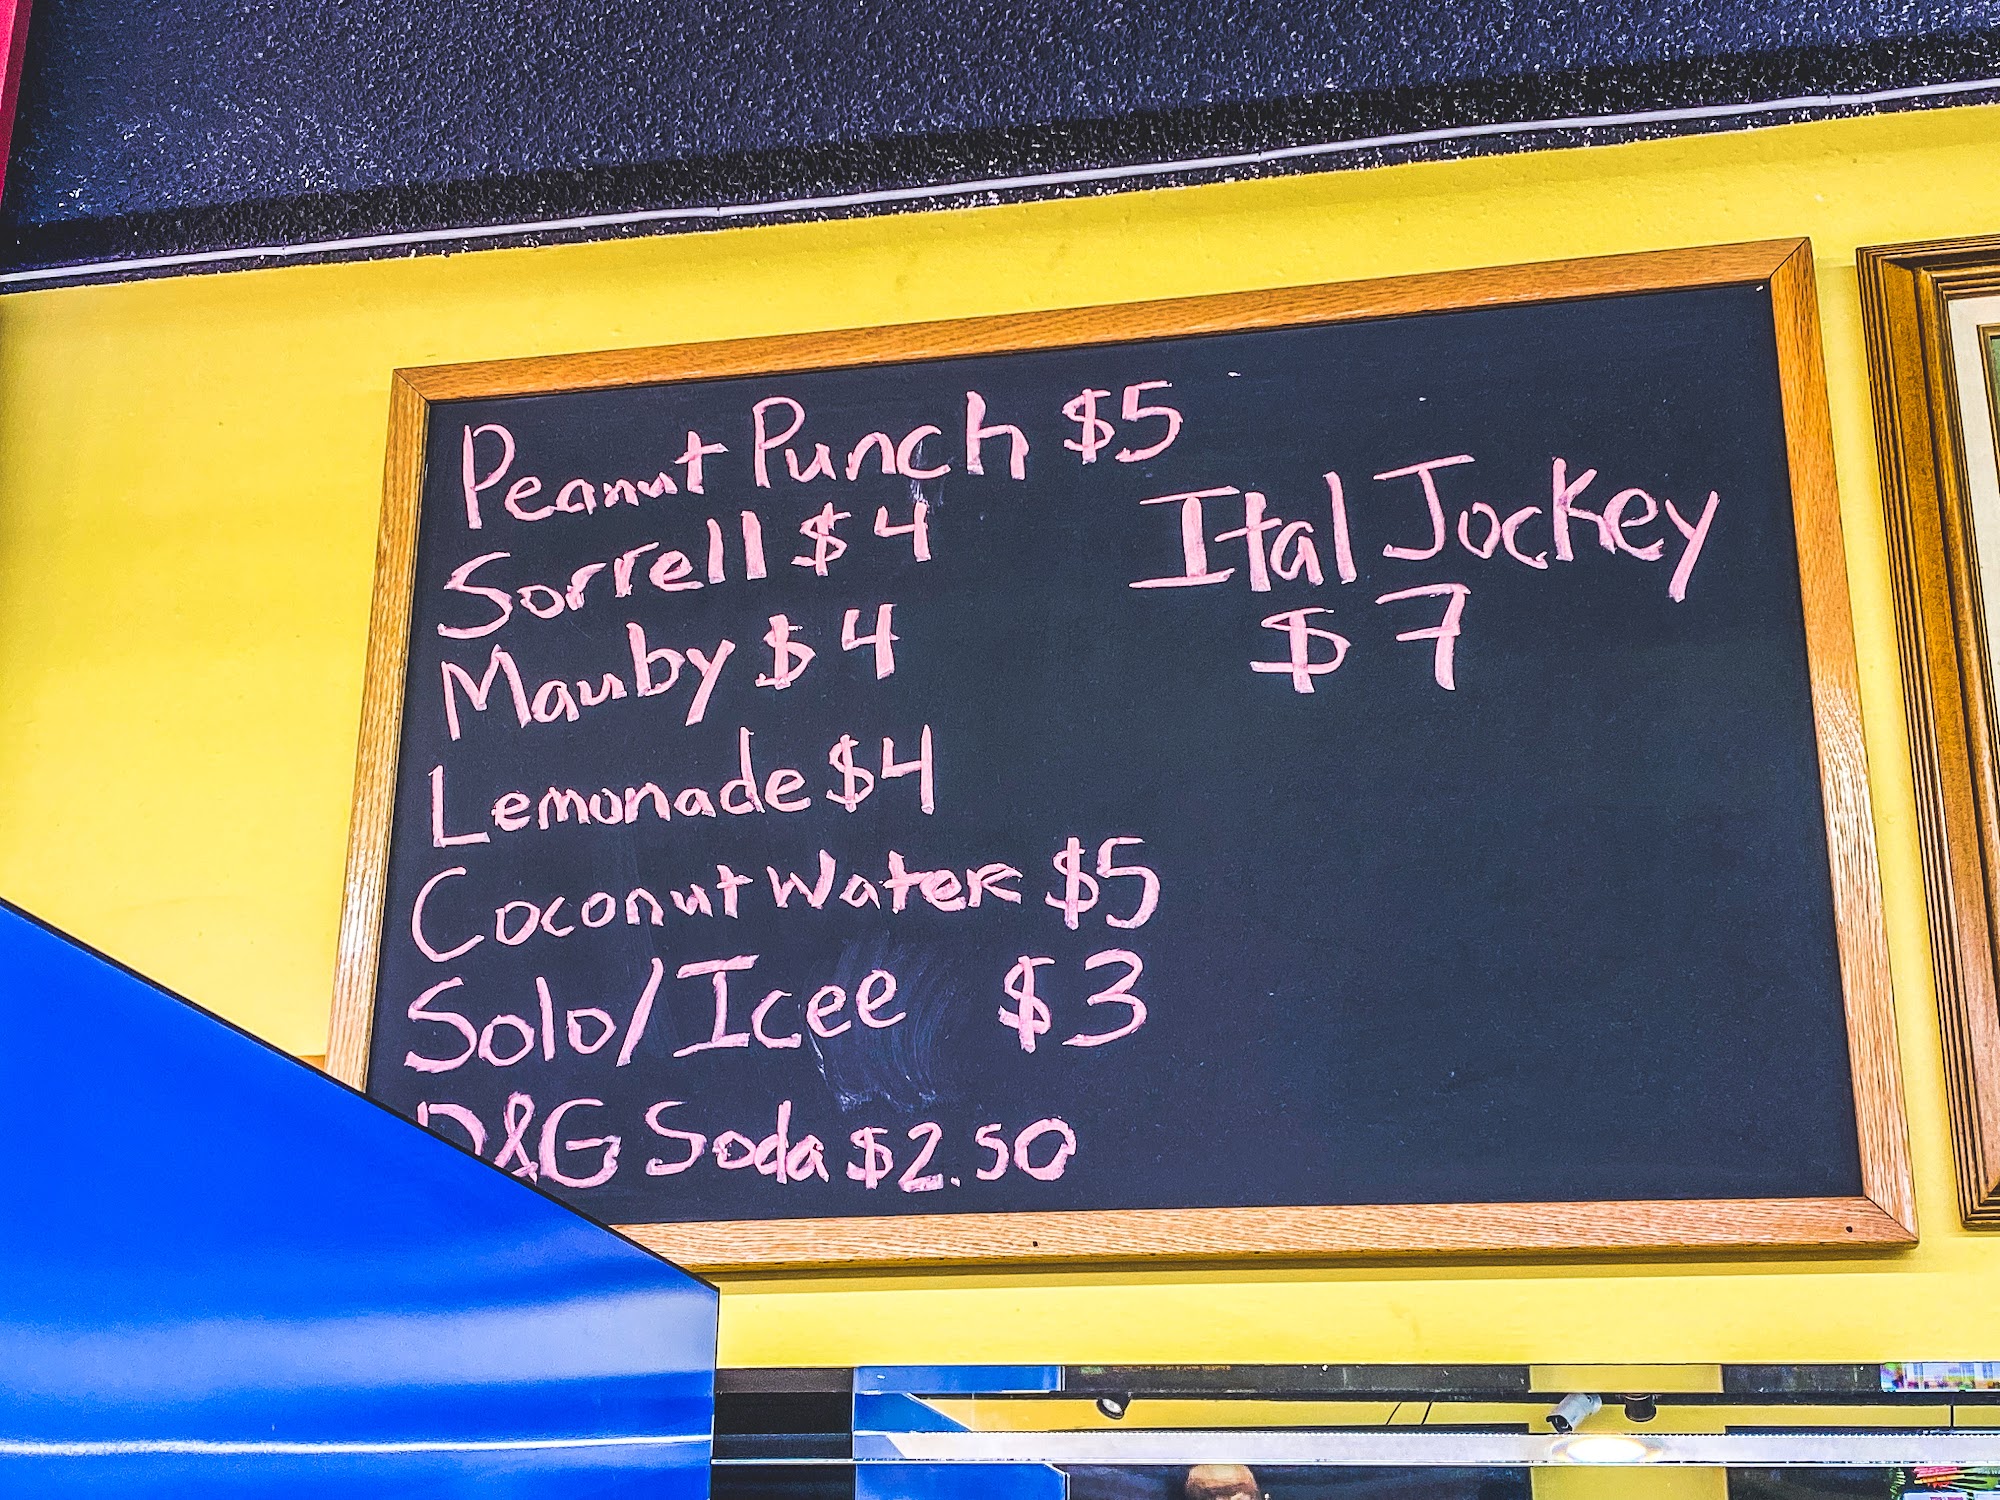 Peanut Punch $5
Sorrell $4
Mauby $4
Lemonade $4
Coconut Water $5
Solo/Icee $3
D&G Soda $2.50
Ital Jockey
$7